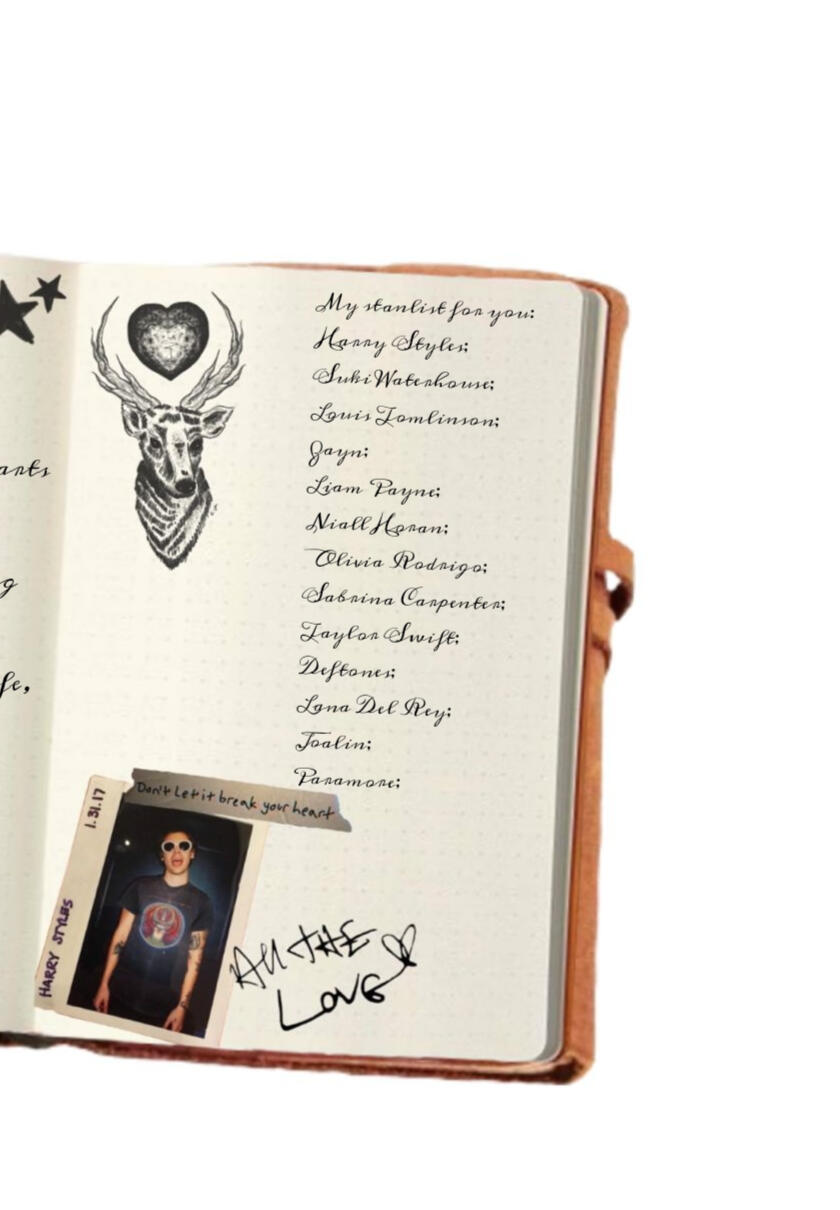 arts
g
fe,
My stanlist for you:
Harry Styles;
Suki Waterhouse;
Louis Tomlinson;
Zayn;
Liam Payne;
Niall Horan;
Olivia Rodrigo;
Sabrina Carpenter;
Taylor Swift;
Deftones;
Lana Del Rey;
Joalin;
Paramore;
Don't Let it break your heart
1.31.17
HARRY STYLES
All THE
LOVE